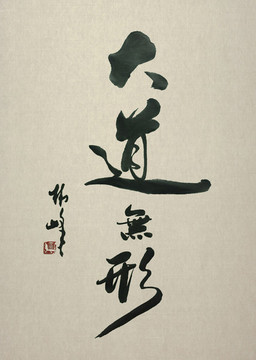 大道無形